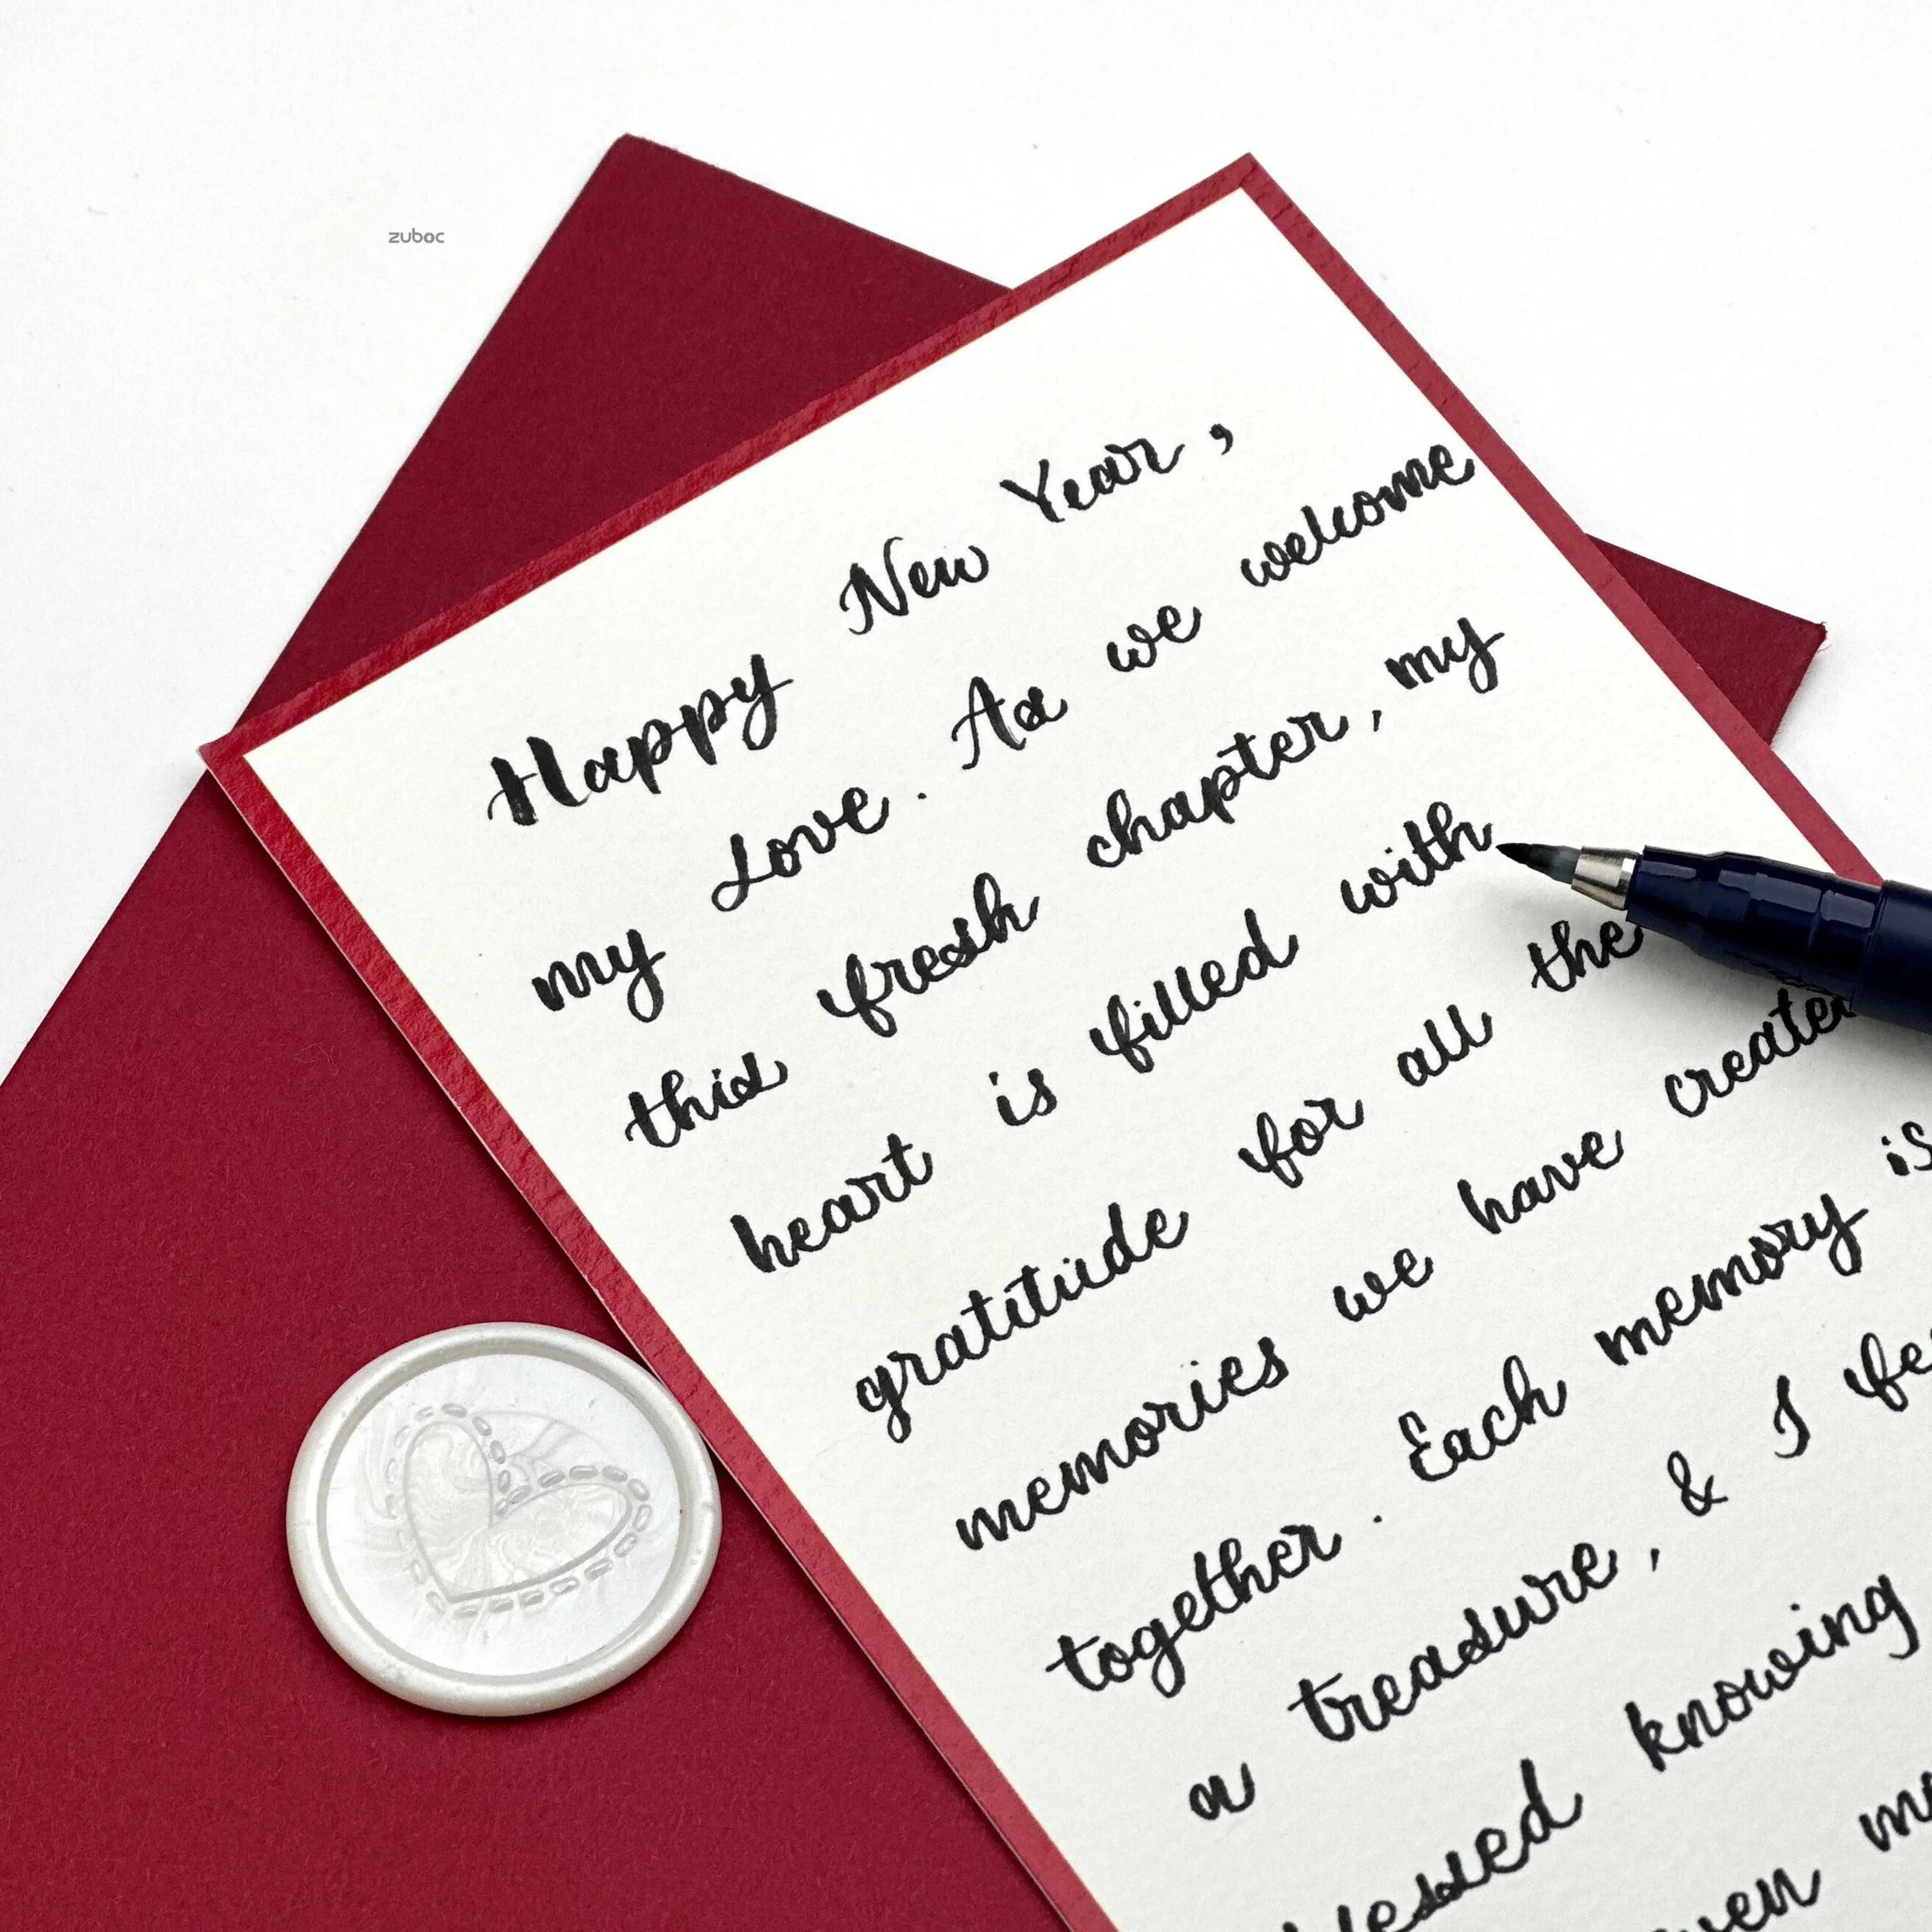 zuboc
Happy New Year,
my Love. As we welcome
this fresh chapter, my
heart is filled with
gratitude for all the
memories we have created
together. Each memory is
a treasure, & I
knowing